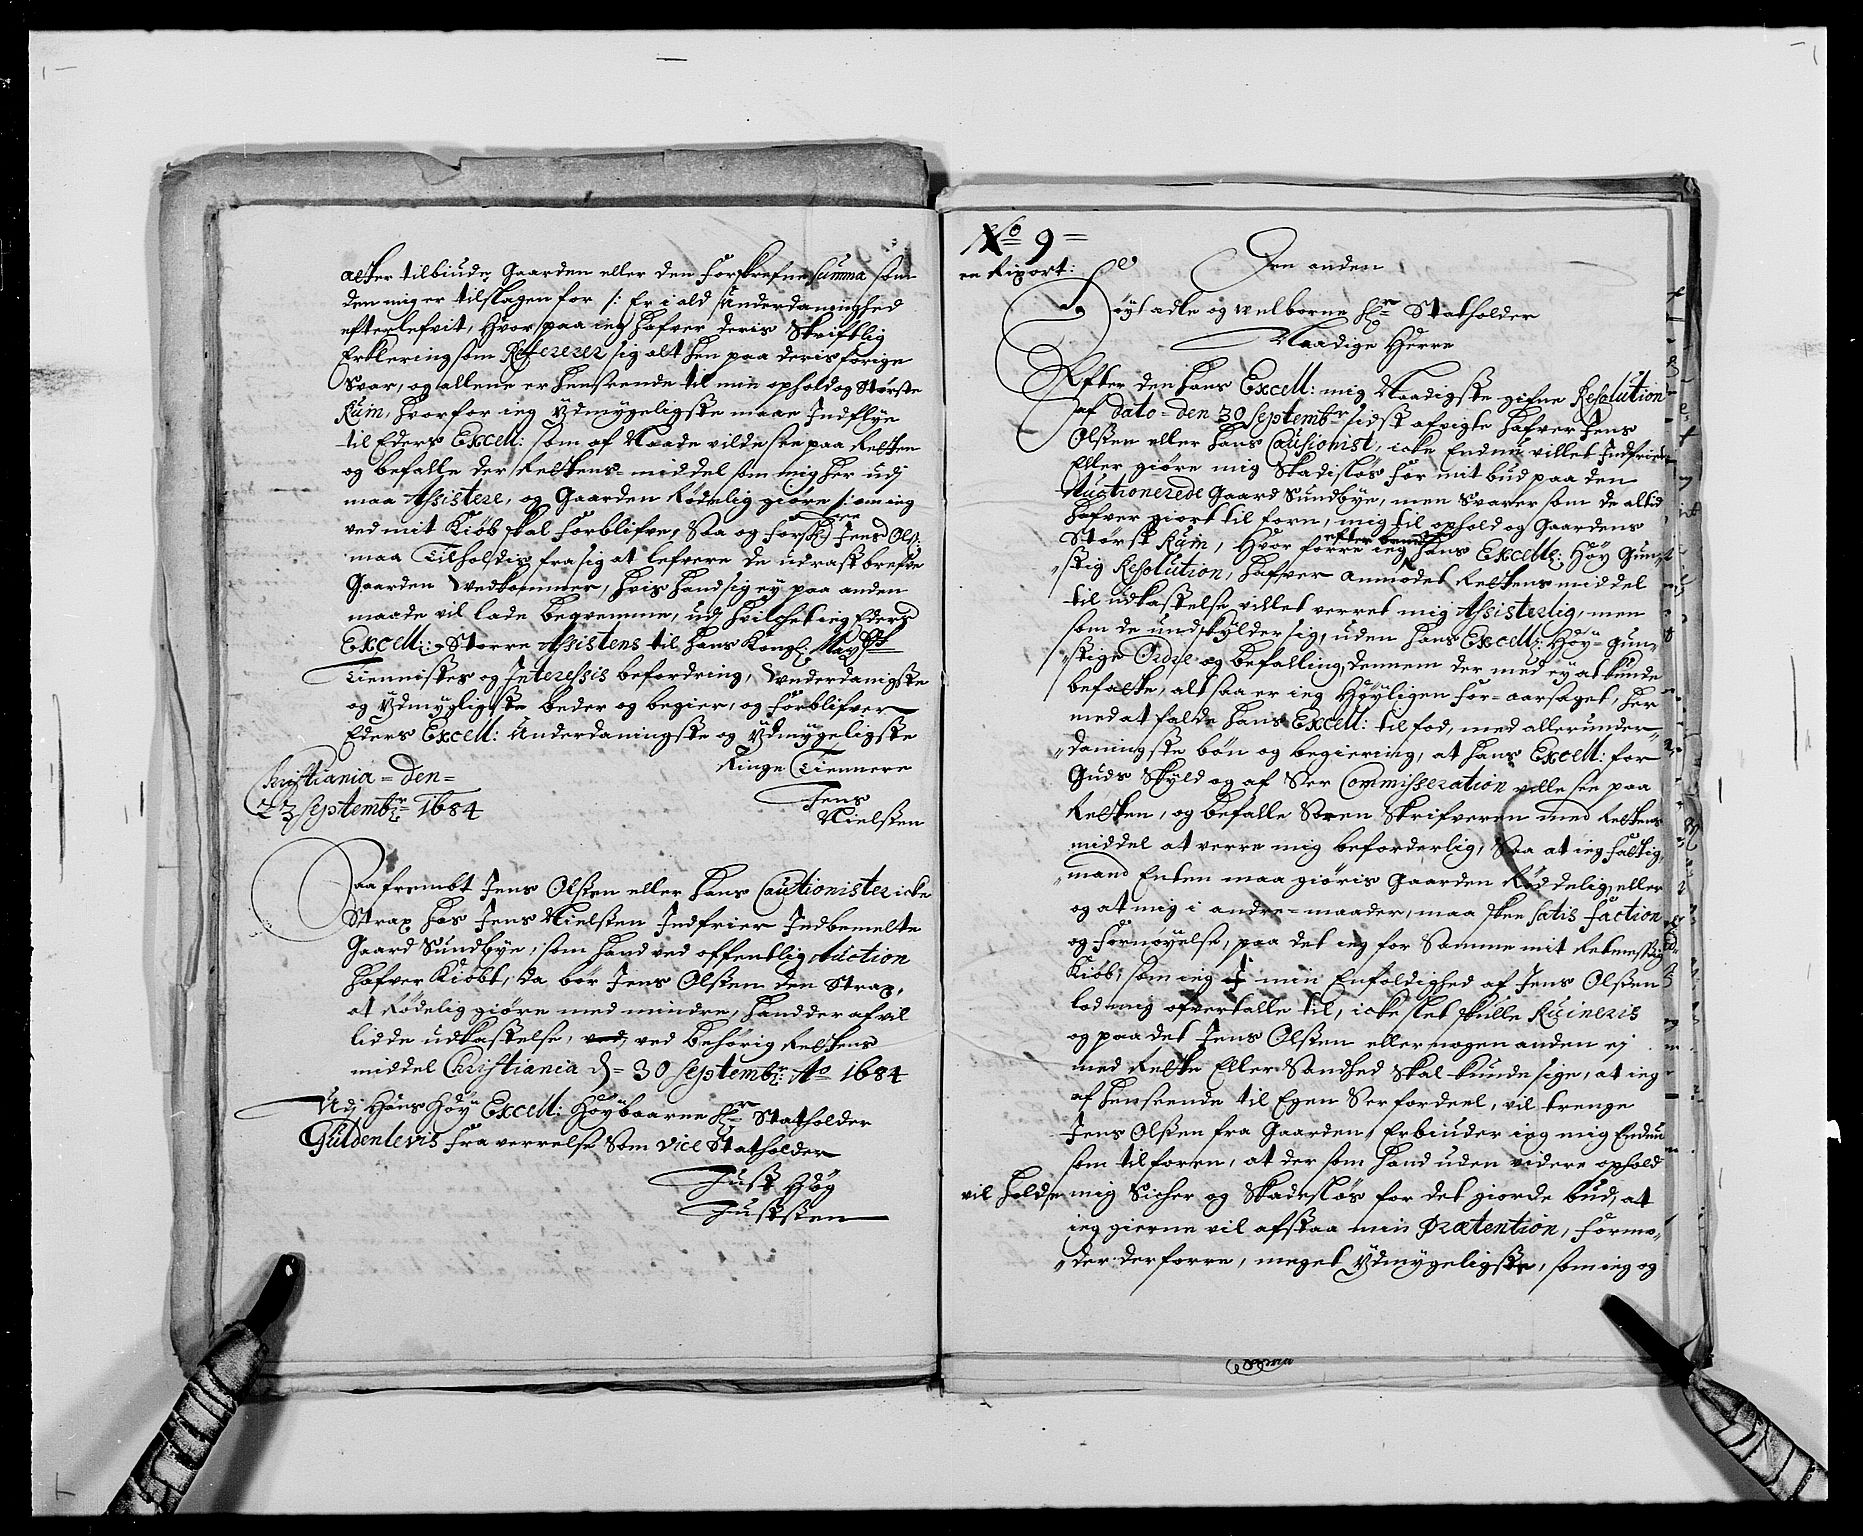 atter tilbiude Gaarden eller den forskrefne Summa som
den mig er tilslagen for /: Er i ald Underdanighed
efterlefvit, Hvor paa ieg hafver deris Skriftlig
Erklering som Refererer sig alt hen paa deris forige
Svar, og allene er henseende til min ophold og Største
Ruin, hvorfor ieg Ydmygeligste maae Indflye
til Eders Excell: som af Naade vilde see paa Retten
og befalle der Rettens middel som mig her udj
maa Assistere, og Gaarden Rødelig giøre som ieg
ved mit Kiøb skal forblifve, Saa og Jens Ols:
maa Tilholdis fra sig at lefvere de udrast brefve
Gaarden Vedkommer, hvis hand sig ey paa anden
maade vil lade beqvemme, udj hvilchet ieg Eders
Excell: Storre Assistens til hans Kongl: May:ts
Tiennistes og Interessis befordring, Underdanigste
og Ydmygligste beder og begier, og forblifver
Eders Excell: Underdaningste og Ydmygeligste
Ringe Tiennere
Christiania = den =
23 Septembr: 1684
Jens
Nielssen
Saa frembt Jens Olssen eller hans Cautionister icke
Strax hos Jens Nielssen Indfrier Indbemelte
Gaard Sundbye, som hand ved offentlig Auction
hafver Kiøbt, da bør Jens Olssen den Strax,
at Rødelig giøre med mindre, hand der af vil
lidde udkastelse, ved ved behørig Rettens
middel Christiania d = 30 Septembr: Ao 1684
Udj Hans Høy Excell: Høybaarne Hr Statholder
Güldenlevis fra verrelse Som Vice Statholder
Just Høg
Justsen
No 9 =
en Riport:
Den anden
Høyl adle og welborne Hr Statholder
Naadige Herre
Efter den hans Excell: mig Naadigste gifne Resolution
af dato = den 30 Septembr sidst afvigte hafver Jens
Olssen eller hans Causionist, icke Endnu villet Indfrie
Eller giøre mig Skadisløs for mit bud paa den
Auctionerede Gaard Sundbye, men Svarer som de altid
hafver giort til forn, mig til ophold og Gaardens
Størst Ruin, Hvor forre ieg efter hans Excell: Høy Gun-
„stig Resolution, hafver anmodet Rettens middel
til udkastelse villet verret mig Assisterlig, men
som de undskylder sig, uden hans Excell: Høy = gun„
„stige Ordre og befalling, dennem der med ey at kunde
befatte, alt saa er ieg Høyligen for = aarsaget, her
med at falde hans Excell: til fod, med allerunder„
„daningste bøn og begiering, at hans Excell: for
Guds Skyld og af Ser Commisseration ville see paa
Retten, og befalle Soren Skrifveren med Rettens
middel at verre mig beforderlig, Saa at ieg fattig
„mand Enten maa giøris Gaarden Røddelig, eller
og at mig i andre = maader, maa skee Satis faction
og fornøyelse, paa det ieg for Samme mit Retmessig
Kiøb, som ieg min Enfoldighed af Jens Olssen
lod mig ofvertalle til, icke slet skulle Ruineris
og paa det Jens Olssen eller nogen anden ej
med Rette Eller Sandhed skal kunde sige, at ieg
af henseende til Egen Ser fordeel, vil trenge
Jens Olssen fra Gaarden, Erbiuder ieg mig Endnu
som tilforen, at der som hand uden videre ophold
vil holde mig Sicher og Skadesløs for det giorde bud, at
ieg gierne vil afstaa min Prætention, forme„
„der derforre, meget Ydmygeligste, som ieg og